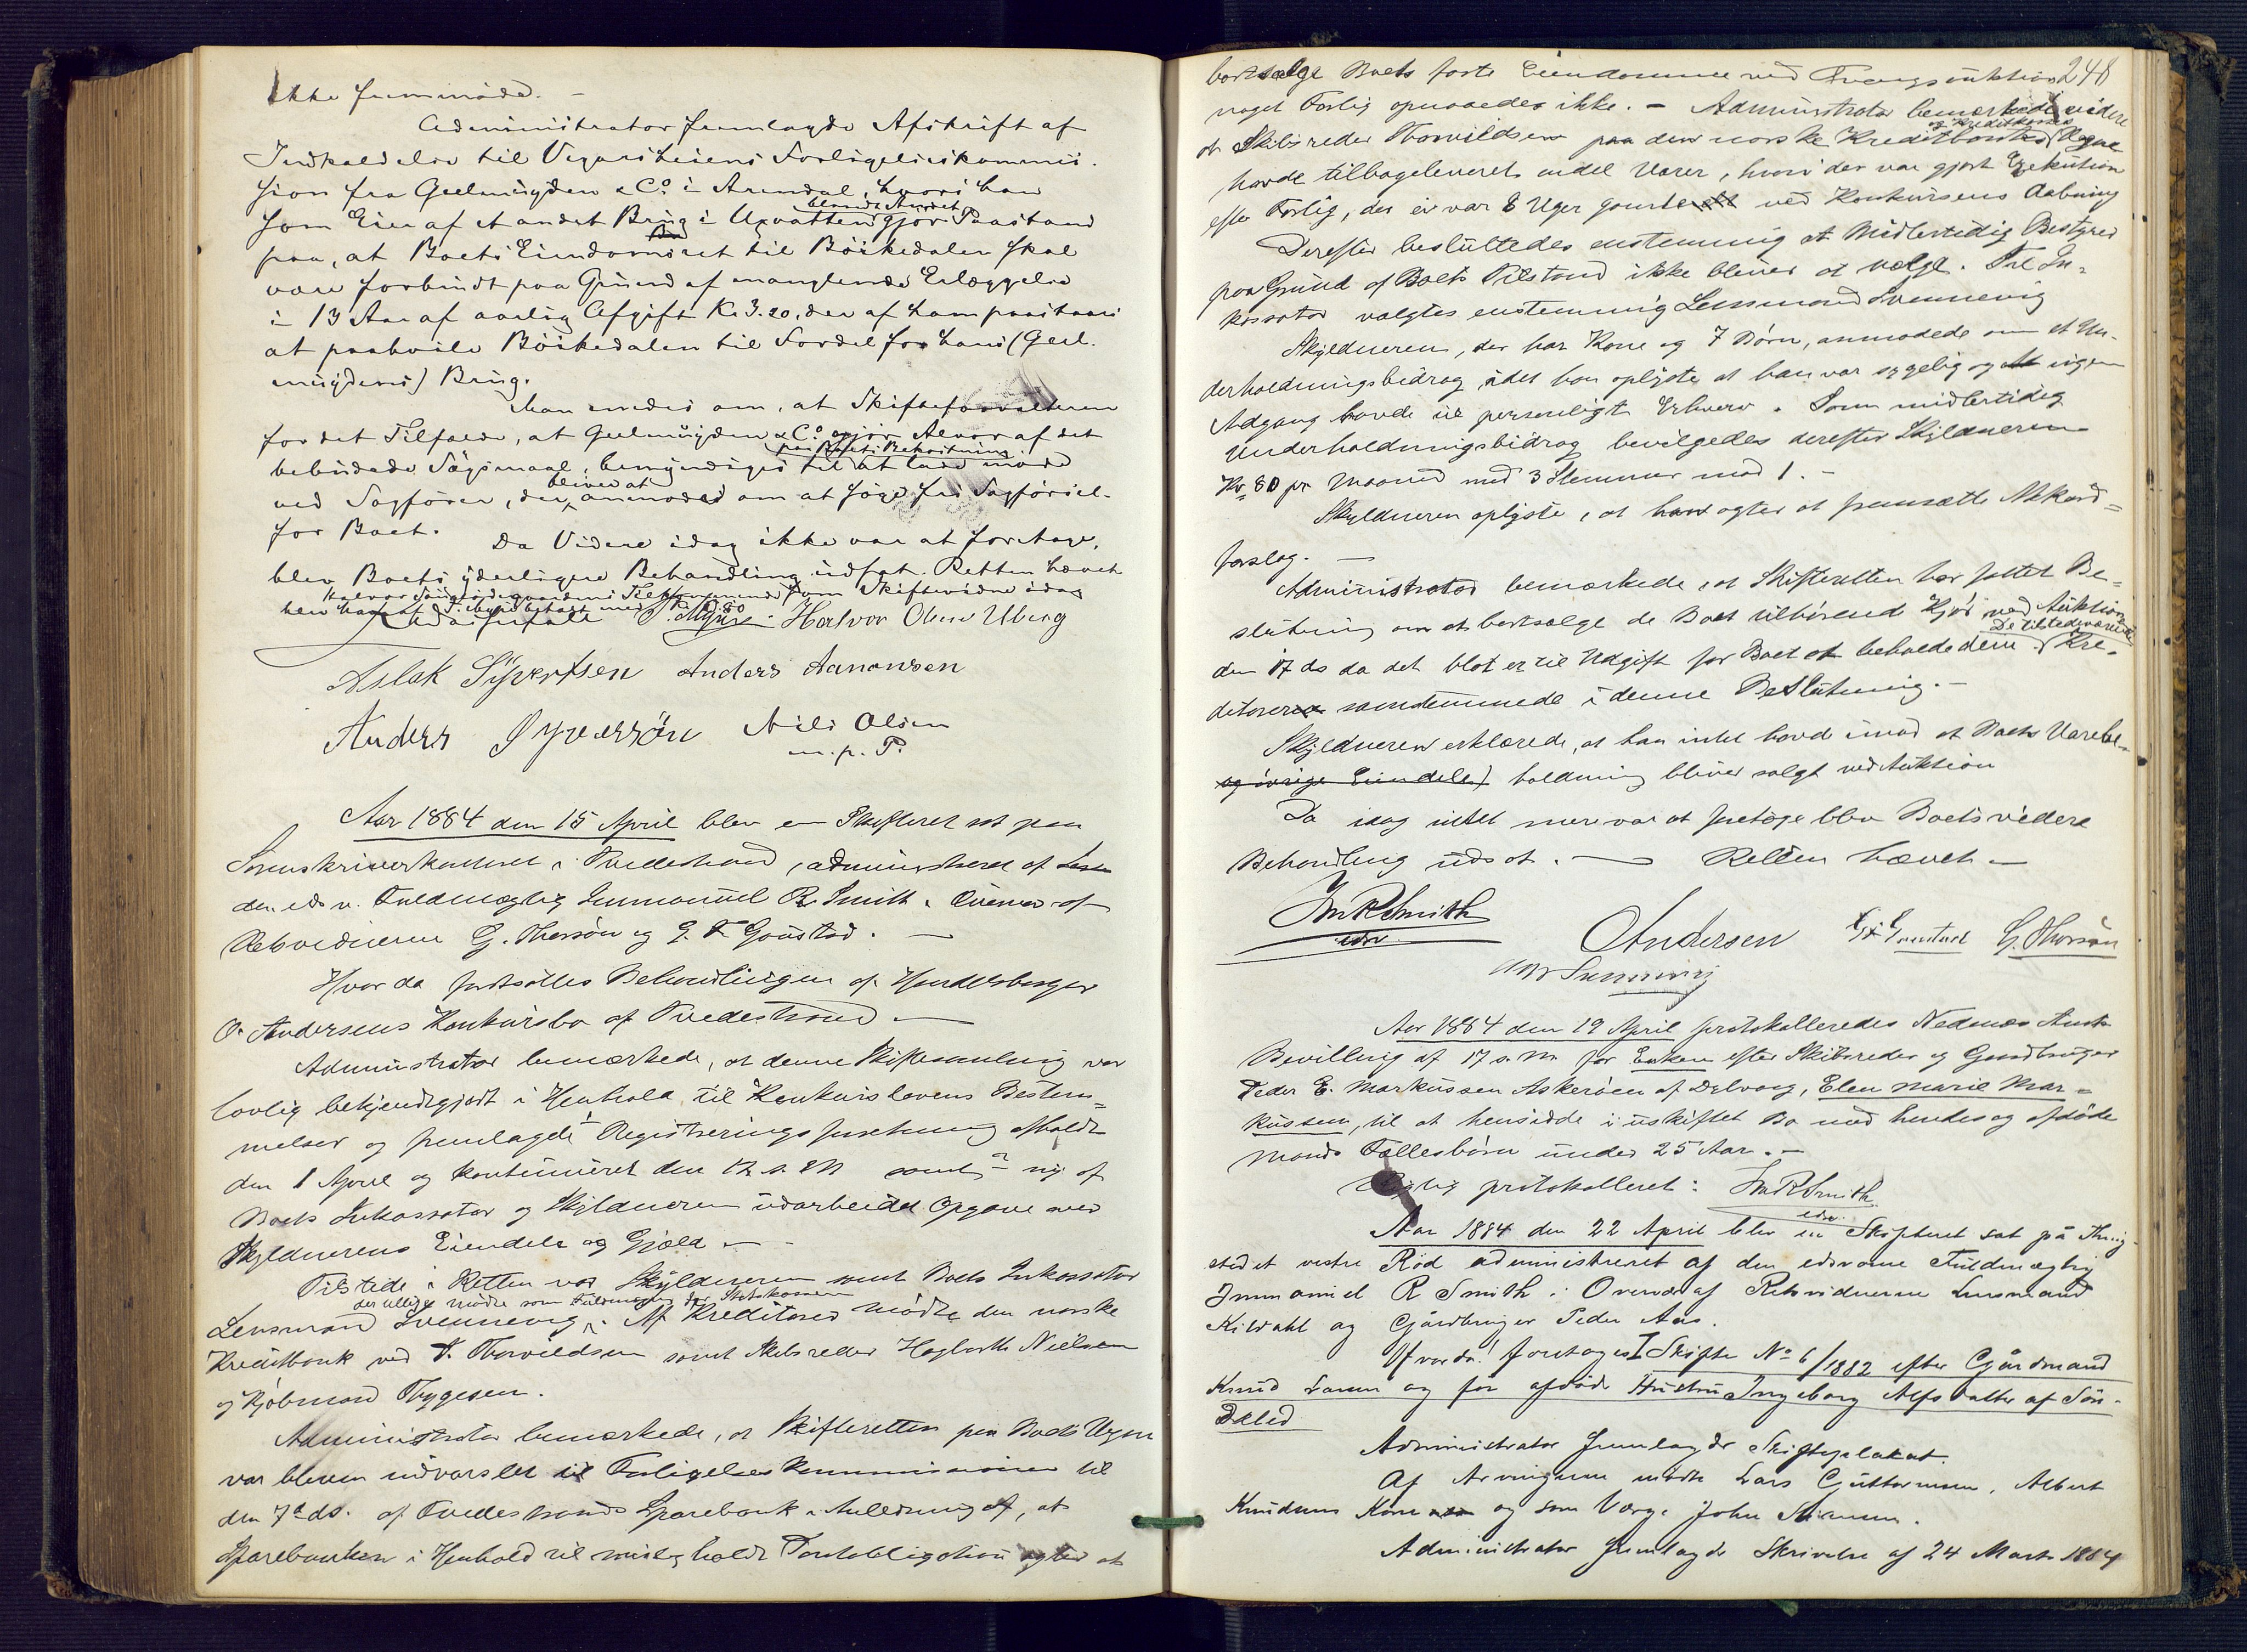 Ikke fremmøde. –
Administrator fremlagde Afskrift af
Indkaldelse til Vegaarsheiens Forligelseskommis.
sion fra Geelmuÿden & Co i Arendal, hvori han
som Eier af et andet Brug i Uxvatten blandt Andet gjør Paastand
paa, at Boets Eiendomsret til Böikedalen skal
være forbrudt paa Grund af manglende Erlæggelse
i 13 Aar af aarlig Afgift Kr 3.20, der af ham paastaaes
at paahvile Böikedalen til Fordel for hans (Geel-
muÿdens) Brug.
Man enedes om, at Skifteforvalteren
for det Tilfælde, at Geelmuÿden & Co gjør Alvor af det
bebudede Søgsmaal, bemyndiges til paa Boets Bekostning at lade møde
ved Sagfører, der bliver at anmode om at søge fri Sagførsel
for Boet.
Da Videre idag ikke var at foretage,
blev Boets yderligere Behandling udsat. Retten hævet
som Skiftevidne idag
Halvor Olsen Uberg
Aslak Sÿvertsen Anders Aanonsen
Anders Syversön Nils Olsen
m. p. P.
Aar 1884 den 15 April blev en Skifteret sat paa
Sorenskriverkontoret i Tvedestrand, administreret af
den eds v. Fuldmægtig Immanuel R. Smith i Overvær af
Retsvidnerne G. Thorsön og G. F. Goustad. –
Hvor da fortsattes Behandlingen af Handelsborger
O. Andersens Konkursbo af Tvedestrand –
Administrator bemærkede, at denne Skiftesamling var
lovlig bekjendtgjort i Henhold til Konkurslovens Bestem-
melser og fremlagde Registreringsforretning afholdt
den 1 April og kontinueret den 12 s. M samt en ny af
Boets Inkassator og Skyldneren udarbeidet Opgave over
Skyldnerens Eiendele og Gjæld –
Tilstede i Retten var Skyldneren samt Boets Inkassator
Lensmand Svennevig, der tillige mødte som Fuldmægtig for Statskassen. Af Kreditorer mødte den norske
Kreditbank ved T. Thorvildsen samt Skibsreder Hagbarth Nielsen
og Kjøbmand Thygesen.
Administrator bemærkede, at Skifteretten paa Boets Vegne
var bleven udvarslet til Forligelseskommissionen til
den 7de ds. af Tvedestrands Sparebank i Anledning af, at
Sparebanken i Henhold til misligholdt Panteobligation agter at
248
bortsælge Boets faste Eiendomme ved Tvangsauktion
noget Forlig opnaaedes ikke. – Administrator bemærkede videre
at Skibsreder Thorvildsen paa den norske Kreditbanks og Kreditkasses Vegne
havde tilbageleveret endel Varer, hvori der var gjort Exekution
efter Forlig, der ei var 8 Uger gammelt ved Konkursens Aabning
Derefter besluttedes enstemmig at Midlertidig Bestyrer
paa Grund af Boets Tilstand ikke bliver at vælge. Til In-
kassator valgtes enstemmig Lensmand Svennevig
Skyldneren, der har Kone og 7 Børn, anmodede om et Un-
derholdningsbidrag, idet han oplyste at han var sygelig og ingen
Adgang havde til personligt Erhverv. Som midlertidig
Underholdningsbidrag bevilgedes derefter Skyldneren
Kr 80 pr Maaned med 3 Stemmer mod 1. –
Skyldneren oplyste, at han agter at fremsætte Akkord-
forslag. –
Administrator bemærkede, at Skifteretten har fattet Be-
slutning om at bortsælge de Boet tilhørende Kjør ved Auktion
den 17 ds da det blot er til Udgift for Boet at beholde dem. De tilstedeværende Kre-
ditorer samstemmede i denne Beslutning. –
Skyldneren erklærede, at han intet havde imod at Boets Varebe-
og øvrige Eiendele) holdning bliver solgt ved Auktion
Da idag intet mere var at foretage blev Boets videre
Behandling udsat. – Retten hævet –
ImRSmith
edsv.
Andersen G F Goustad G. Thorsön
Svennevig
Aar 1884 den 19 April protokolleredes Nedenæs Amts
Bevilling af 17 s. M. for Enken efter Skibsreder og Gaardbruger
Peder E. Markussen Askerøen af Dybvaag, Elen Marie Mar-
kussen, til at hensidde i uskiftet Bo med hendes og afdøde
Mands Fællesbørn under 25 Aar. –
Rigtig protokolleret: ImRSmith
edsv.
Aar 1884 den 22 April blev en Skifteret sat på Thing-
stedet vestre Röd administreret af den edsvorne Fuldmægtig
Immanuel R Smith i Overvær af Retsvidnerne Lensmand
Kildahl og Gårdbruger Peder Aas.
Hvorda: foretoges I Skifte No 6/1882 efter Gårdmand
Knud Larsen og før afdøde Hustru Ingeborg Alfsdatter af Sön-
deled
Administrator fremlagde Skifteplakat.
Af Arvingerne mødte Lars Guttormsen, Albert
Knudsens Kone og som Værge John
Administrator fremlagde Skrivelse af 24 Marts 1884